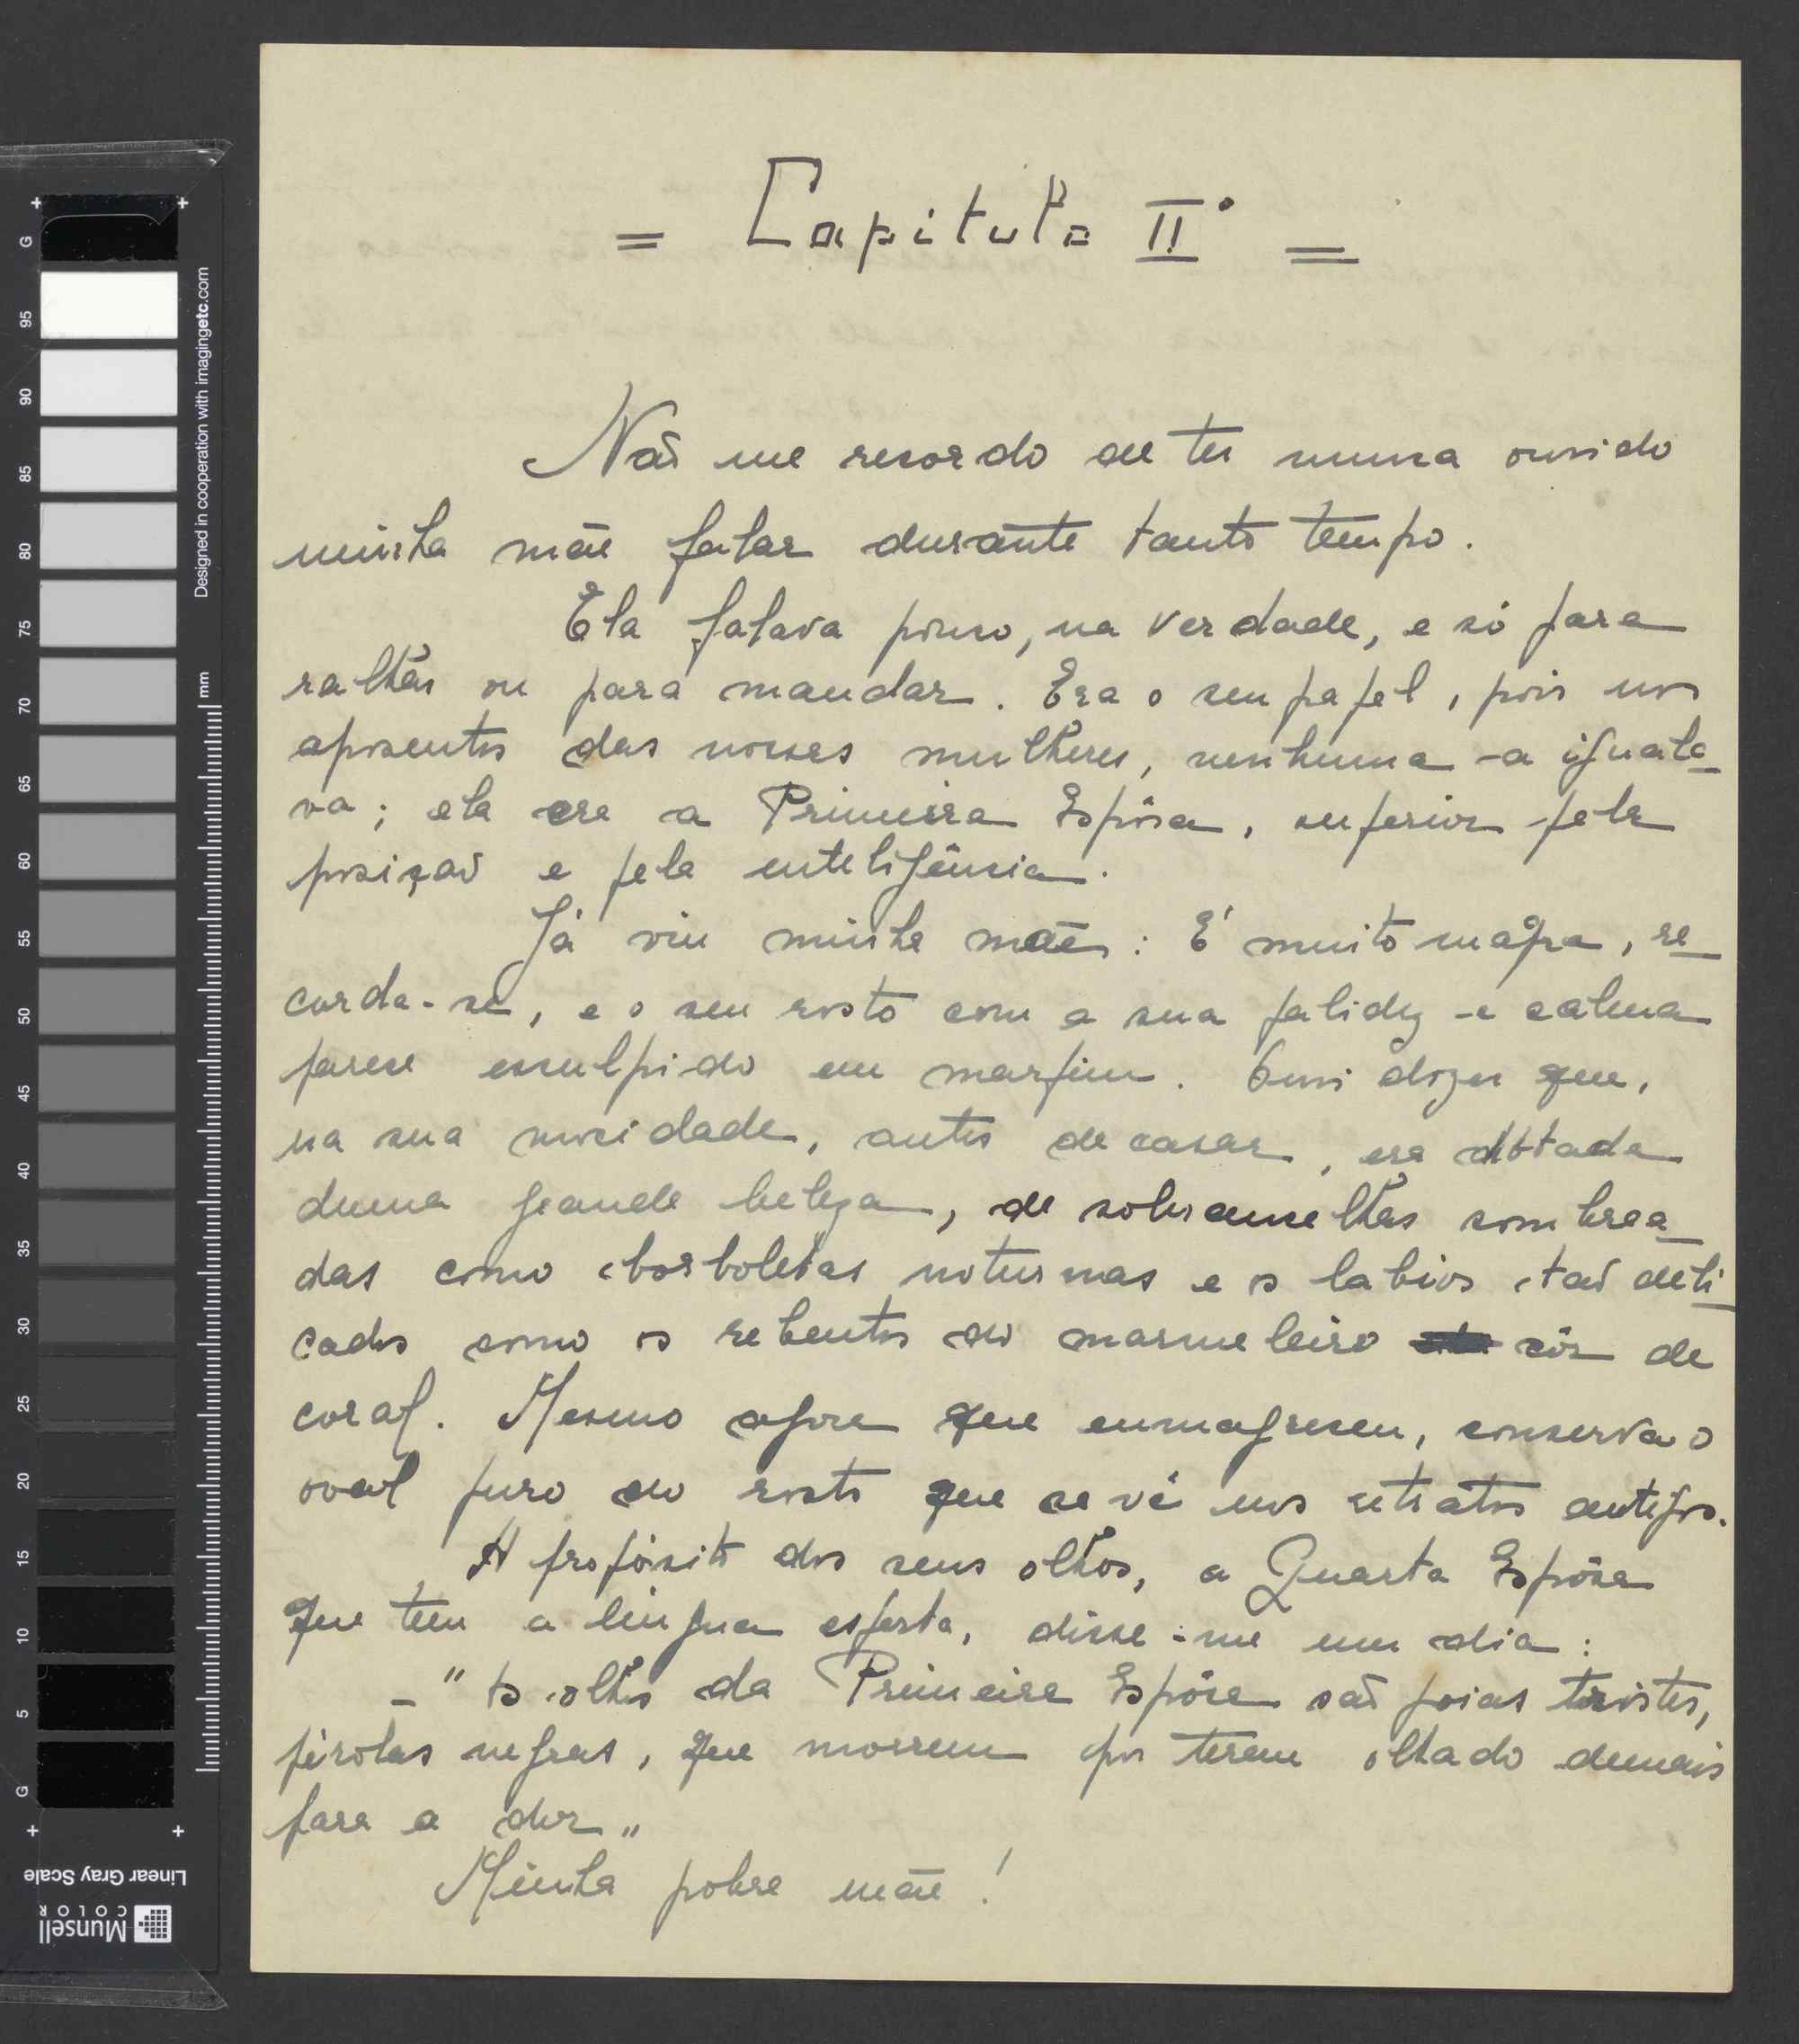 = Capitulo II° =
Não me recordo de ter nunca ouvido
minha mãe falar durante tanto tempo.
Ela falava pouco, na verdade, e só para
ralhar ou para mandar. Era o seu papel, pois nos
aposentos das nossas mulheres, nenhuma a iguala-
va; ela era a Primeira Espôsa, superior pela
posição e pela inteligência.
Já viu minha mãe: É muito magra, re-
corda-se, e o seu rosto com a sua palidez e calma
parece esculpido em marfim. Ouvi dizer que,
na sua mocidade, antes de casar, era dotada
duma grande beleza, de sobrancelhas sombrea-
das como borboletas noturnas e os labios tão deli-
cados como os rebentos do marmeleiro côr de
coral. Mesmo agora que emmagreceu, conserva o
oval puro do rosto que se vê nos retratos antigos.
A propósito dos seus olhos, a Quarta Espôsa
que tem a lingua esperta, disse-me um dia:
- "Os olhos da Primeira Espôsa são joias tristes,
pérolas negras, que morrem por terem olhado demais
para a dor"
Minha pobre mãe!
G
95
90
85
80
75
70
65
60
55
50
45
40
35
30
25
20
15
10
5
G
mm
Designed in cooperation with imagingetc.com
Linear Gray Scale
Munsell
COLOR